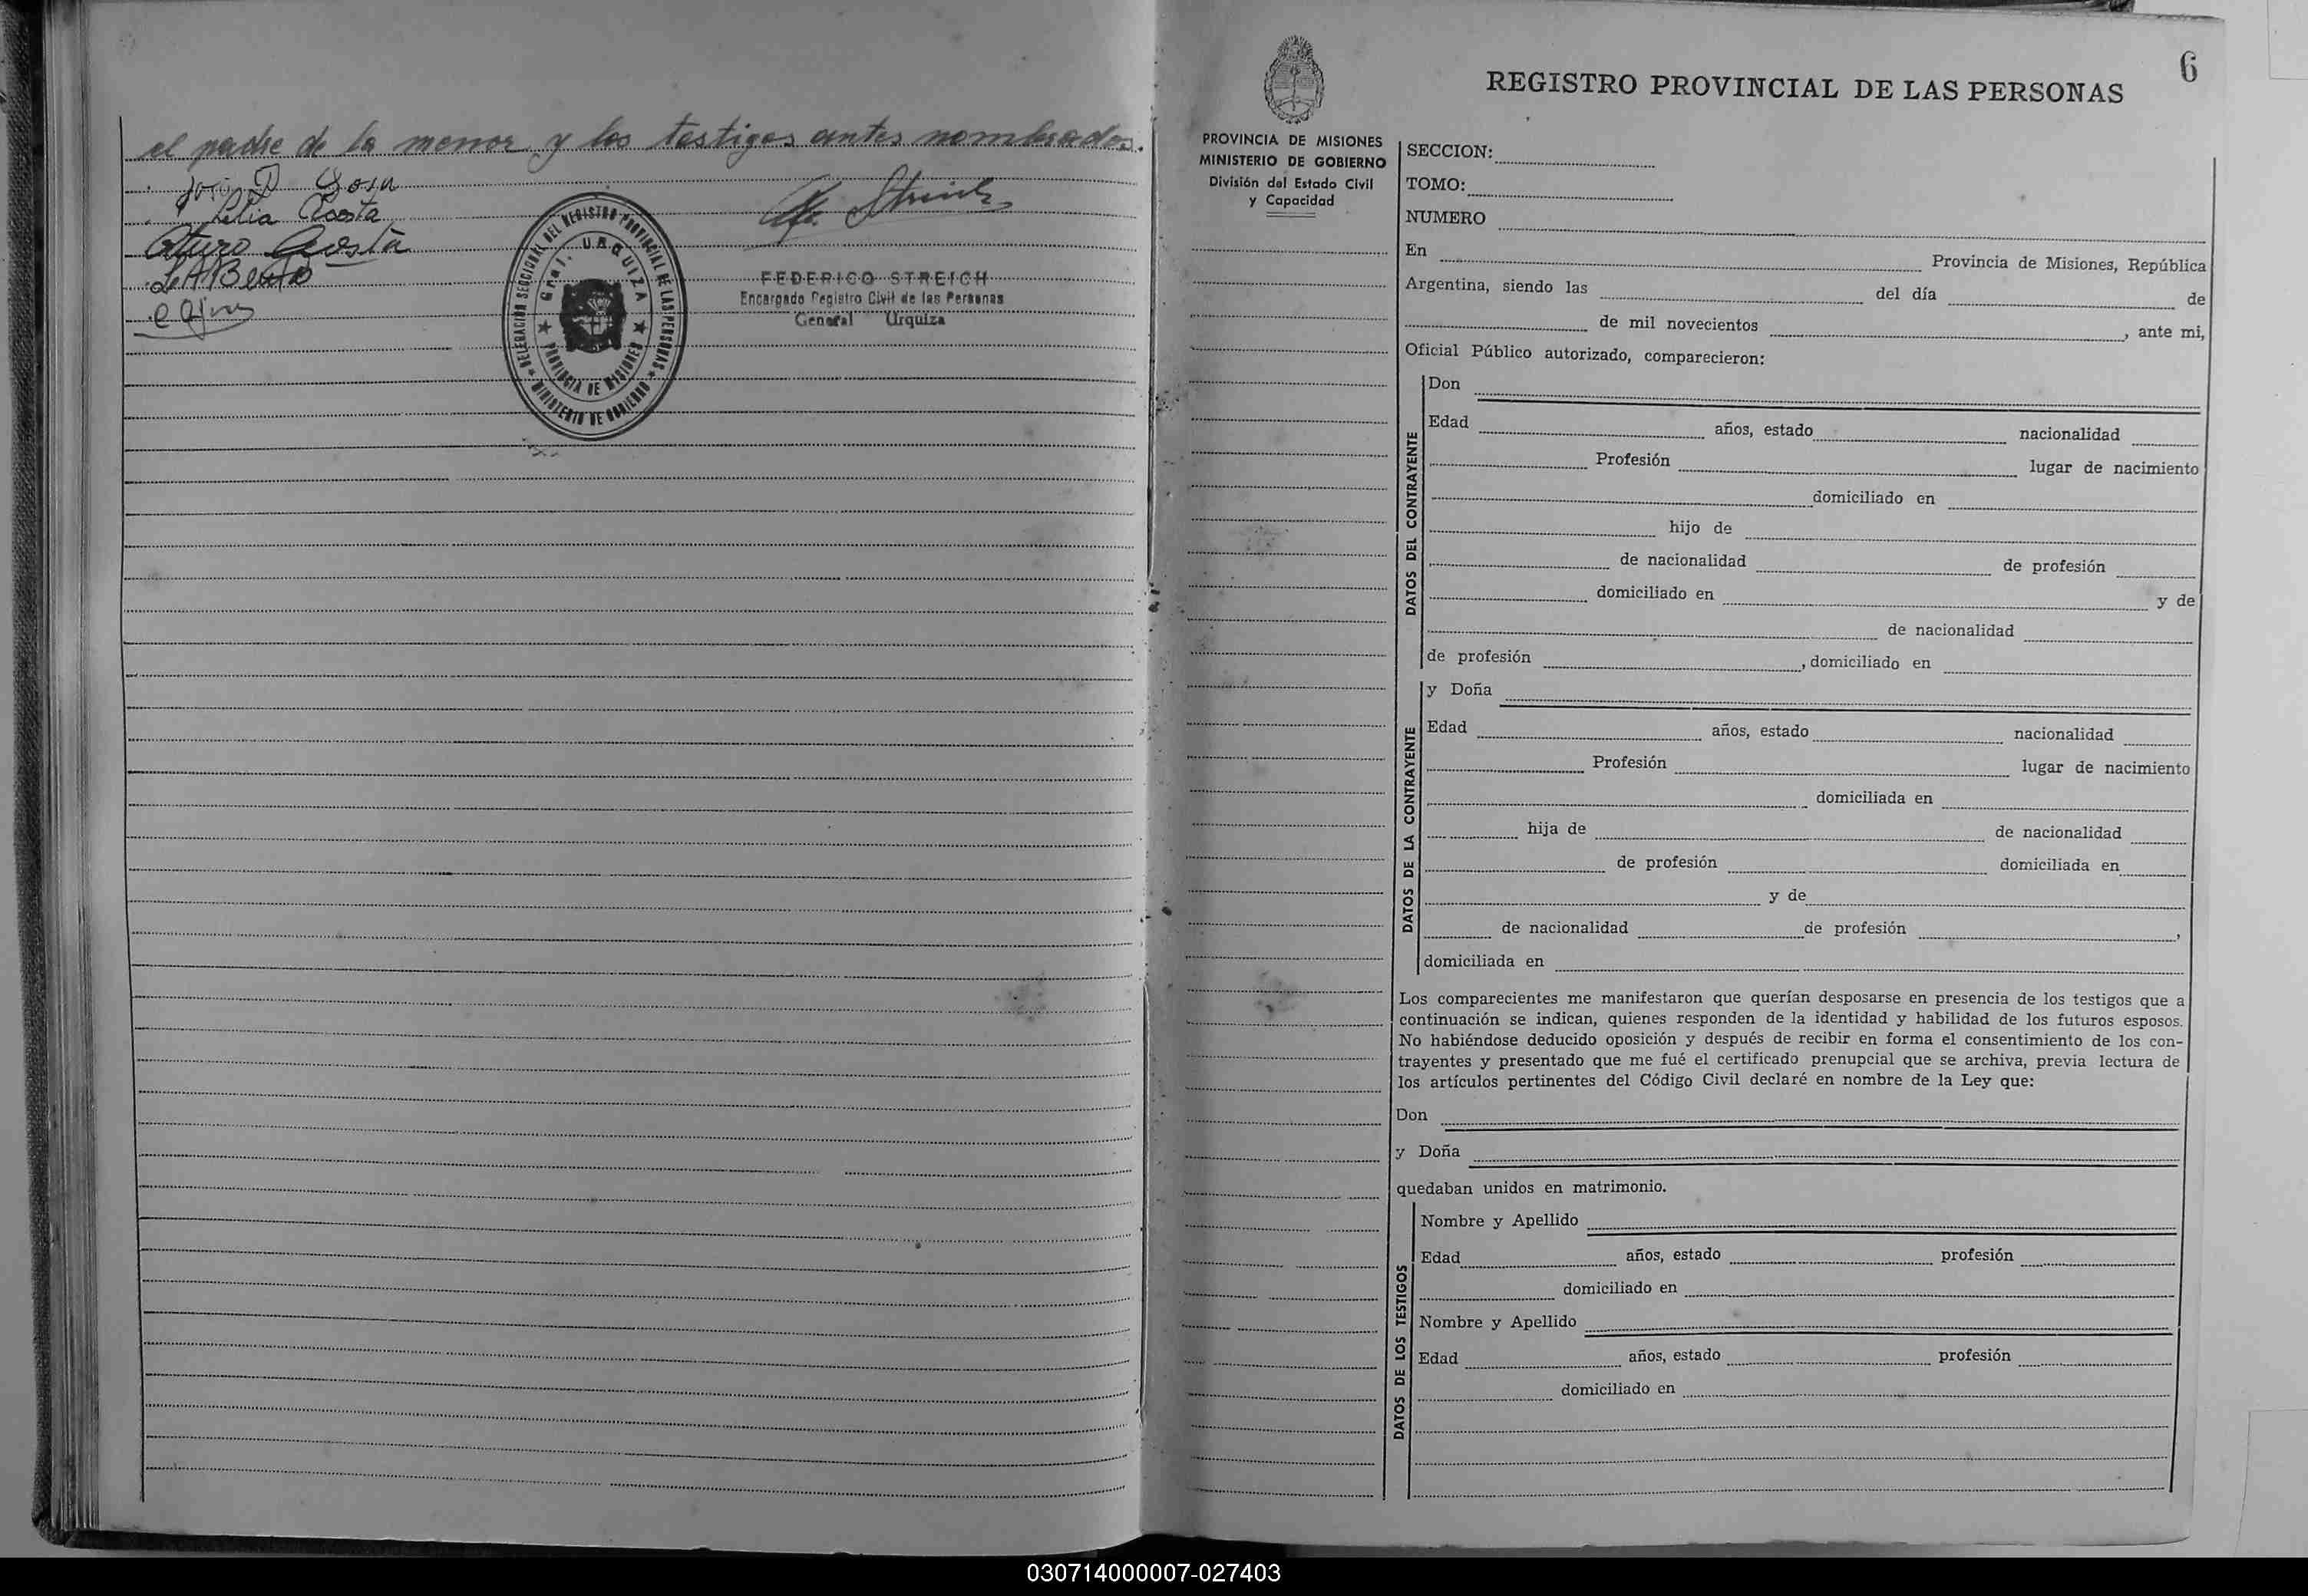 el padre de la menor y los testigos antes nombrados.
José D Sosa
Lelia Acosta
Arturo Acosta
FEDERICO STREICH
Encargado Registro Civil de las Personas
General Urquiza
DELEGACION SECCIONAL DEL REGISTRO PROVINCIAL DE LAS PERSONAS
★ MINISTERIO DE GOBIERNO ★
Gral. URQUIZA
★ PROVINCIA DE MISIONES ★
6
REGISTRO PROVINCIAL DE LAS PERSONAS
PROVINCIA DE MISIONES
MINISTERIO DE GOBIERNO
División del Estado Civil
y Capacidad
SECCION:
TOMO:
NUMERO
En Provincia de Misiones, República
Argentina, siendo las del día de
de mil novecientos , ante mi,
Oficial Público autorizado, comparecieron:
DATOS DEL CONTRAYENTE
Don
Edad años, estado nacionalidad
Profesión lugar de nacimiento
domiciliado en
hijo de
de nacionalidad de profesión
domiciliado en y de
de nacionalidad
de profesión , domiciliado en
DATOS DE LA CONTRAYENTE
y Doña
Edad años, estado nacionalidad
Profesión lugar de nacimiento
domiciliada en
hija de de nacionalidad
de profesión domiciliada en
y de
de nacionalidad de profesión ,
domiciliada en
Los comparecientes me manifestaron que querían desposarse en presencia de los testigos que a
continuación se indican, quienes responden de la identidad y habilidad de los futuros esposos.
No habiéndose deducido oposición y después de recibir en forma el consentimiento de los con-
trayentes y presentado que me fué el certificado prenupcial que se archiva, previa lectura de
los artículos pertinentes del Código Civil declaré en nombre de la Ley que:
Don
y Doña
quedaban unidos en matrimonio.
DATOS DE LOS TESTIGOS
Nombre y Apellido
Edad años, estado profesión
domiciliado en
Nombre y Apellido
Edad años, estado profesión
domiciliado en
030714000007-027403